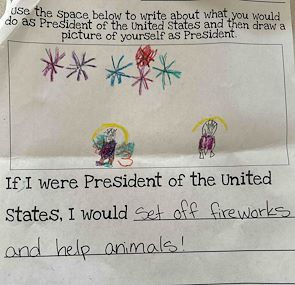 Use the space below to write about what you would
do as President of the United States and then draw a
picture of yourself as President.
If I were President of the United
States, I would set off fireworks
and help animals!